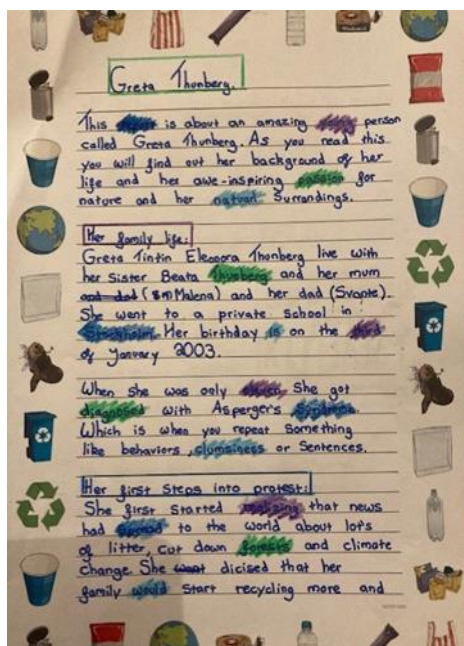 Greta Thunberg.
This report is about an amazing young person
called Greta Thunberg. As you read this
you will find out her background of her
life and her awe-inspiring passion for
nature and her natural Surrandings.
Her family life:
Greta Tintin Eleonora Thonberg live with
her Sister Beata Thunberg and her mum
and dad (Malena) and her dad (Svante).
She went to a private school in
Stockholm. Her birthday is on the third
of January 2003.
When she was only She got
diagnosed with Asperger's Syndrome.
Which is when you repeat Something
like behaviors, clumsiness or Sentences.
Her first Steps into protest:
She first started realizing that news
had spread to the world about lot's
of litter, cut down forests and climate
change. She want dicised that her
family would start recycling more and